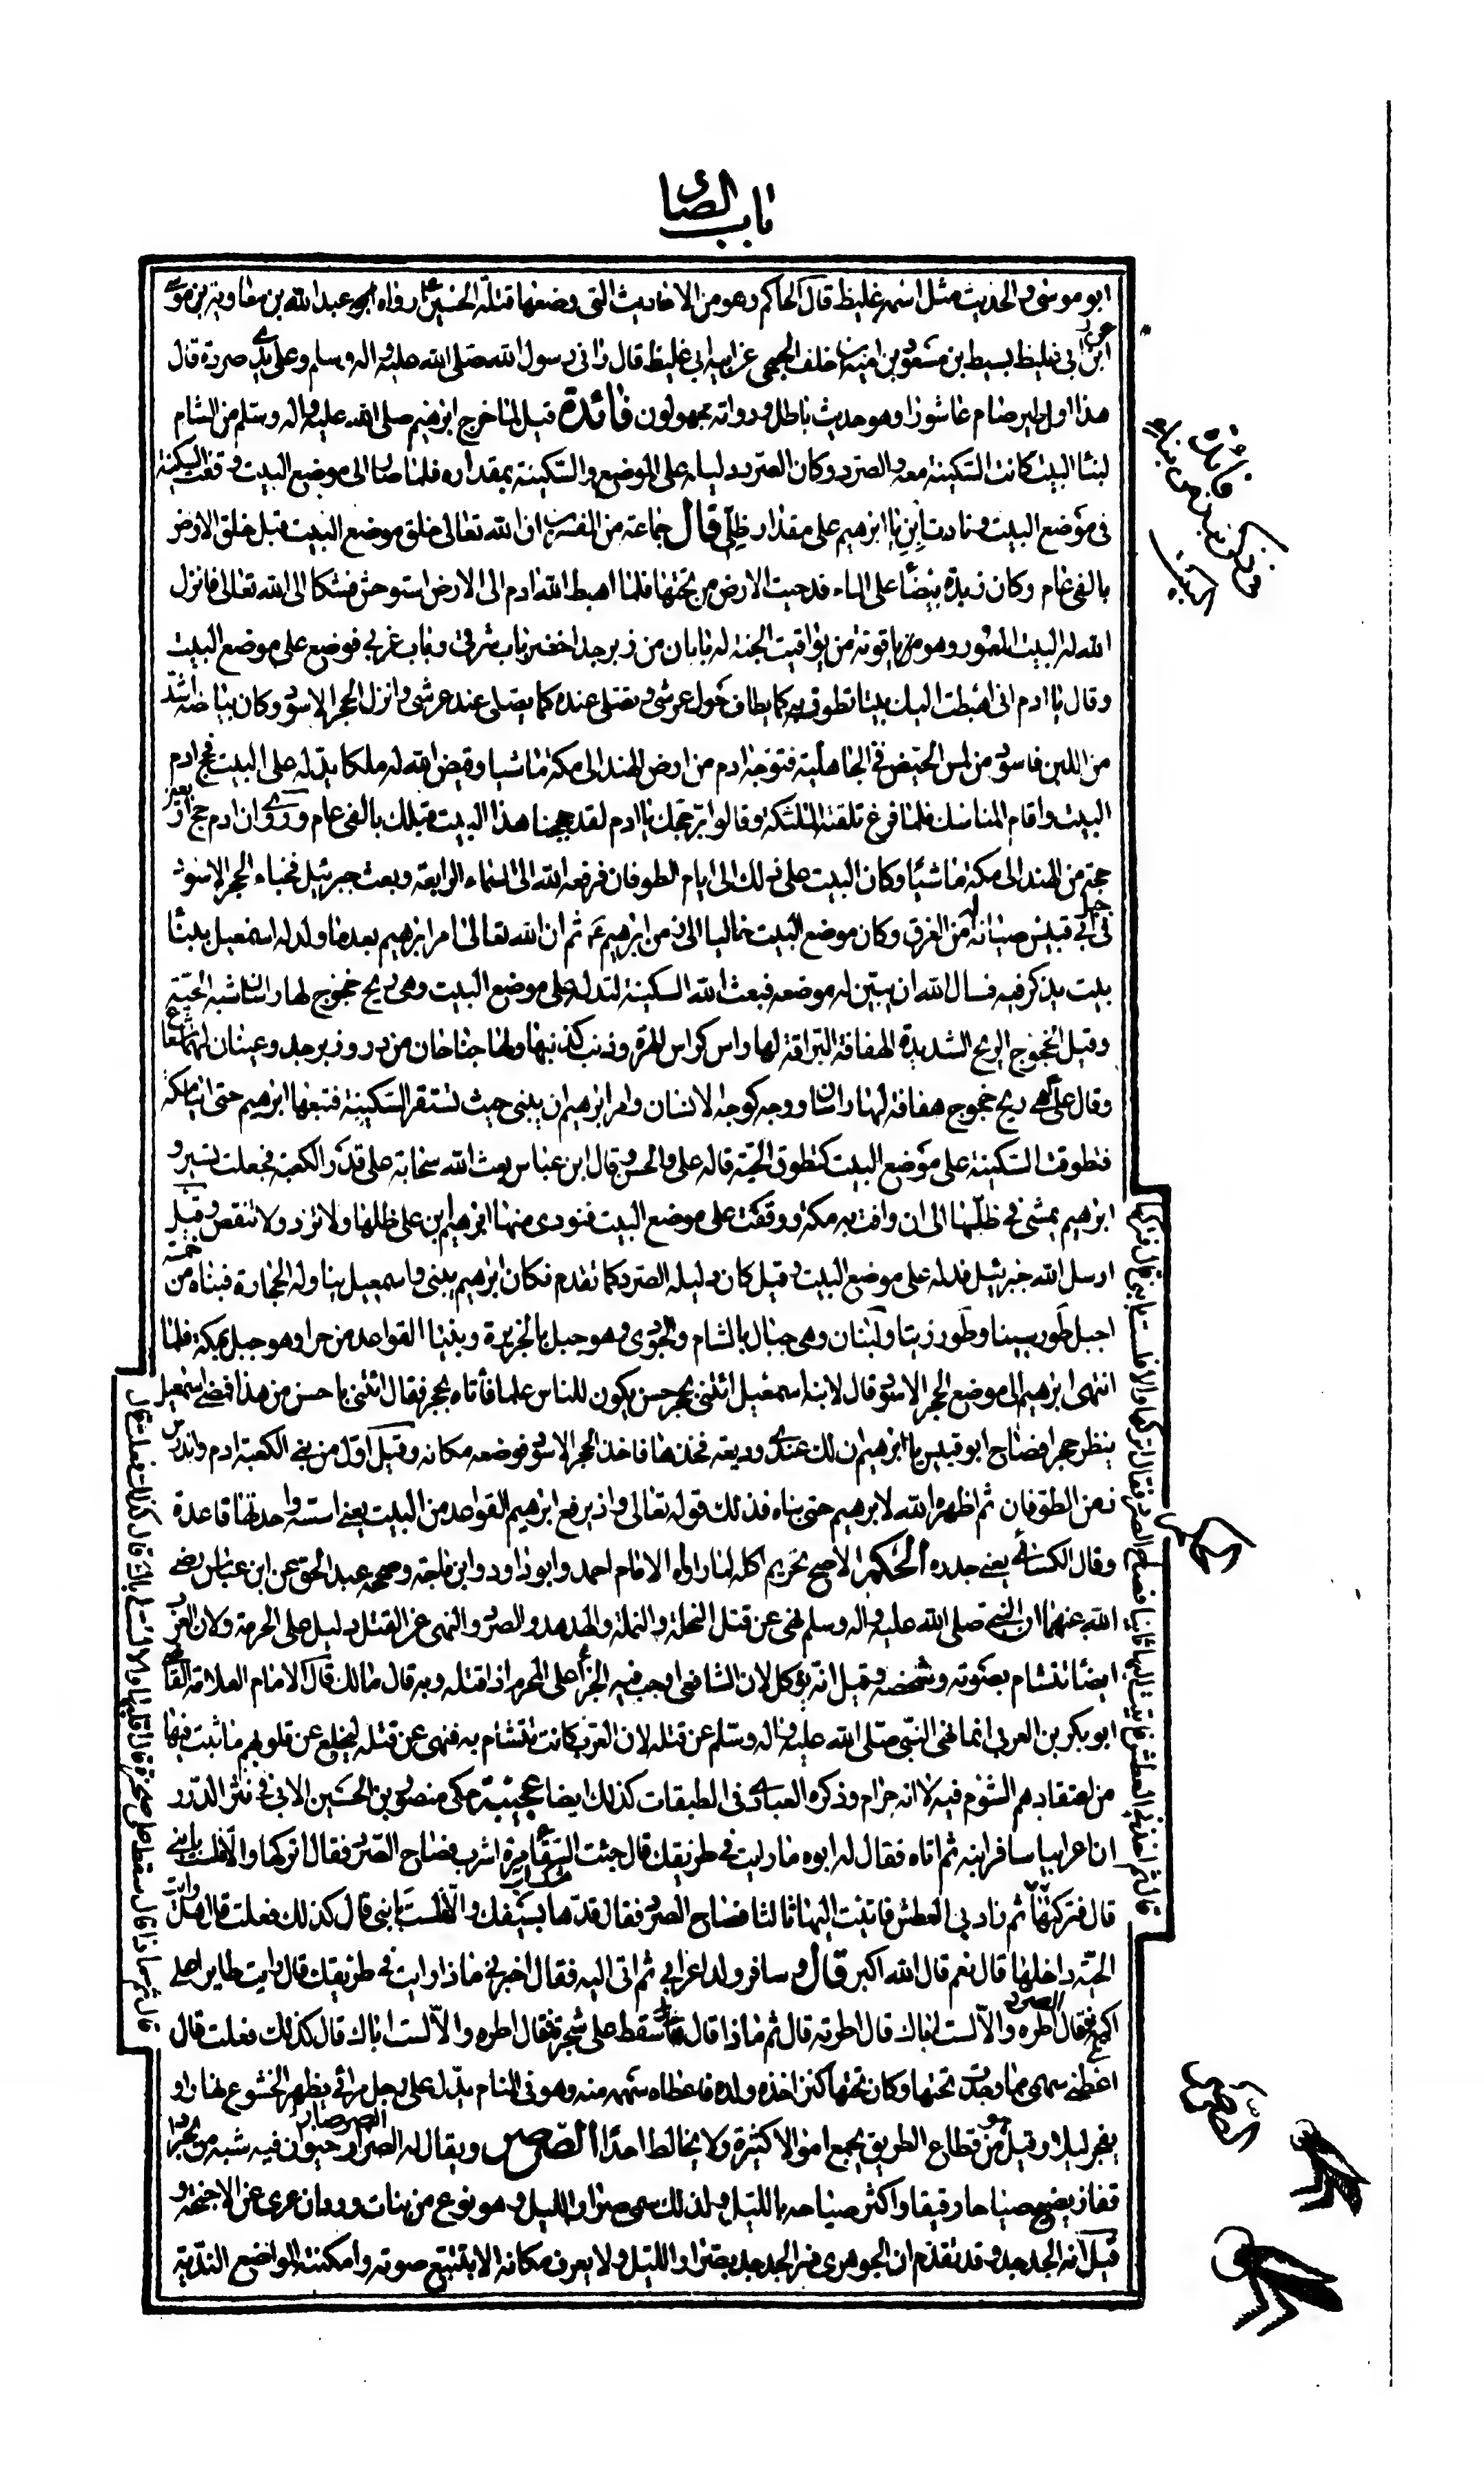 باب الصاد
ابو موسى والحديث مثل اسمه غليظ قال الحاكم وهو من الاحاديث التى وضعها قتلة الحسين رواه عبد الله بن معاوية بن موسى
ابن ابى غليظ بسيط بن مسعود بن امية بن خلف الجمحى عن ابيه ابى غليظ قال رانى رسول الله صلى الله عليه واله وسلم وعلى يدى صردة قال
هذا اول طير صام عاشورا وهو حديث باطل ورواته مجهولون فائدة قيل لما خرج ابرهيم صلى الله عليه واله وسلم من الشام
لبناء البيت كانت السكينة معه والصرد وكان الصرد دليله على الموضع والسكينة بمقداره فلما صار الى موضع البيت وقفت السكينة
فى موضع البيت ونادت ابن يا ابرهيم على مقدار ظلى قال جماعة من المفسرين ان الله تعالى خلق موضع البيت قبل خلق الارض
بالفى عام وكان زبدة بيضاء على الماء فدحيت الارض من تحتها فلما اهبط الله ادم الى الارض استوحش فشكا الى الله تعالى فانزل
الله له البيت المعمور وهو من ياقوتة من يواقيت الجنة له بابان من زبرجد اخضر باب شرقى وباب غربى فوضع على موضع البيت
وقال يا ادم انى اهبطت اليك بيتا تطوف به كما يطاف حول عرشى وتصلى عنده كما يصلى عند عرشى وانزل الحجر الاسود وكان بياضه اشد
من اللبن فاسود من لمس الحيض فى الجاهلية فتوجه ادم من ارض الهند الى مكة ماشيا وقيض الله له ملكا يدله على البيت فحج ادم
البيت واقام المناسك فلما فرغ تلقته الملئكة وقالوا بر حجك يا ادم لقد حججنا هذا البيت قبلك بالفى عام وروى ان ادم حج اربعين
حجة من الهند الى مكة ماشيا وكان البيت على ذلك الى ايام الطوفان فرفعه الله الى السماء الرابعة وبعث جبرئيل فخباء الحجر الاسود
فى جبل ابى قبيس صيانة له من الغرق وكان موضع البيت خاليا الى زمن ابرهيم ثم ان الله تعالى امر ابرهيم بعد ما ولد له اسمعيل ببناء
بيت يذكر فيه فسال الله ان يبين له موضعه فبعث الله السكينة لتدله على موضع البيت وهى ريح خجوج لها راسان شبه الحية
وقيل الخجوج الريح الشديدة الهفافة البراقة لها راس كراس الهرة وذنب كذنبها ولها جناحان من در وزبرجد وعينان لهما شعاع
وقال على هى ريح خجوج هفافة لها راسان ووجه كوجه الانسان وامر ابرهيم ان يبنى حيث تستقر السكينة فتبعها ابرهيم حتى اتيا مكة
فتطوقت السكينة على موضع البيت كتطوق الحية قاله على والحسن وقال ابن عباس بعث الله سحابة على قدر الكعبة فجعلت تسير و
ابرهيم يمشى فى ظلها الى ان وافت به مكة ووقفت على موضع البيت فنودى منها ابرهيم ابن على ظلها ولا تزد ولا تنقص وقيل
ارسل الله جبرئيل فدله على موضع البيت وقيل كان دليله الصرد كما تقدم فكان ابرهيم يبنى واسمعيل يناوله الحجارة فبناه من خمسة
اجبل طور سينا وطور زيتا ولبنان وهى جبال بالشام والجودى وهو جبل بالجزيرة وبنيا القواعد من حرا وهو جبل بمكة فلما
انتهى ابرهيم الى موضع الحجر الاسود قال لابنه اسمعيل ائتنى بحجر حسن يكون للناس علما فأتاه بحجر فقال ائتنى باحسن من هذا فمضى اسمعيل
ينظر حجرا فصاح ابو قبيس يا ابرهيم ان لك عندى وديعة فخذها فاخذ الحجر الاسود فوضعه مكانه وقيل اول من بنى الكعبة ادم واندرس
زمن الطوفان ثم اظهره الله لابرهيم حتى بناه فذلك قوله تعالى واذ يرفع ابرهيم القواعد من البيت يعنى اسسه واحدتها قاعدة
وقال الكسائى يعنى جدره الحكم الاصح تحريم اكله لما رواه الامام احمد وابو داود وابن ماجة وصححه عبد الحق عن ابن عباس رضى
الله عنهما ان النبى صلى الله عليه واله وسلم نهى عن قتل النحلة والنملة والهدهد والصرد والنهى عن القتل دليل على الحرمة ولان العرب
ايضا تتشام بصوته وشخصه وقيل انه يؤكل لان الشافعى اوجب فيه الجزاء على المحرم اذا قتله وبه قال مالك قال الامام العلامة القاضى
ابو بكر بن العربى انما نهى النبى صلى الله عليه واله وسلم عن قتله لان العرب كانت تتشام به فنهى عن قتله ليخلع عن قلوبهم ما ثبت فيها
من اعتقادهم الشوم فيه لا انه حرام وذكره العبادى فى الطبقات كذلك ايضا عجيبة حكى منصور بن الحسين الابى فى نثر الدرر
ان اعرابيا سافر ابنه ثم اتاه فقال له ابوه ما رايت فى طريقك قال جئت السقا مرة اشرب فصاح الصرد فقال اتركها والا فلست بابنى
قال فتركتها ثم زاد بى العطش فاتيت اليها ثالثا فصاح الصرد فقال قدها بسيفك والا فلست بابنى قال كذلك فعلت قال هل رايت
الحية داخلها قال نعم قال الله اكبر قال وسافر ولد اعرابى ثم اتى اليه فقال اخبرنى ماذا رايت فى طريقك قال رايت طايرا على
اكمة فقال الصرد اطره والا لست اباك قال اطرته قال ثم ماذا قال سقط على شجرة فقال اطره والا لست اباك قال كذلك فعلت قال
اعطنى سهمى مما وجدت تحتها وكان تحتها كنز اخذه ولده فاعطاه سهمه منه وهو فى المنام يدل على رجل مرائى يظهر الخشوع نهارا و
يفجر ليلا وقيل هو من قطاع الطريق يجمع اموالا كثيرة ولا يخالط احدا الصرصر ويقال له الصرصار حيوان فيه شبه من الجراد
قفاز يصيح صياحا رقيقا واكثر صياحه بالليل ولذلك سمى صرار الليل وهو نوع من بنات وردان عرى عن الاجنحة و
قيل انه الجدجد وقد تقدم ان الجوهرى فسر الجدجد بصرار الليل ولا يعرف مكانه الا بتتبع صوته وامكنته المواضع الندية
قال ثم اخذنى العطش فاتيت اليها ثانيا فصاح الصرد فقال اتركها والا فلست بابنى قال فتركتها
قال ثم ماذا قال سقط على صخرة قال اقلبها والا لست باباك قال كذلك فعلت قال
فائدة
الصرد
الصرصر